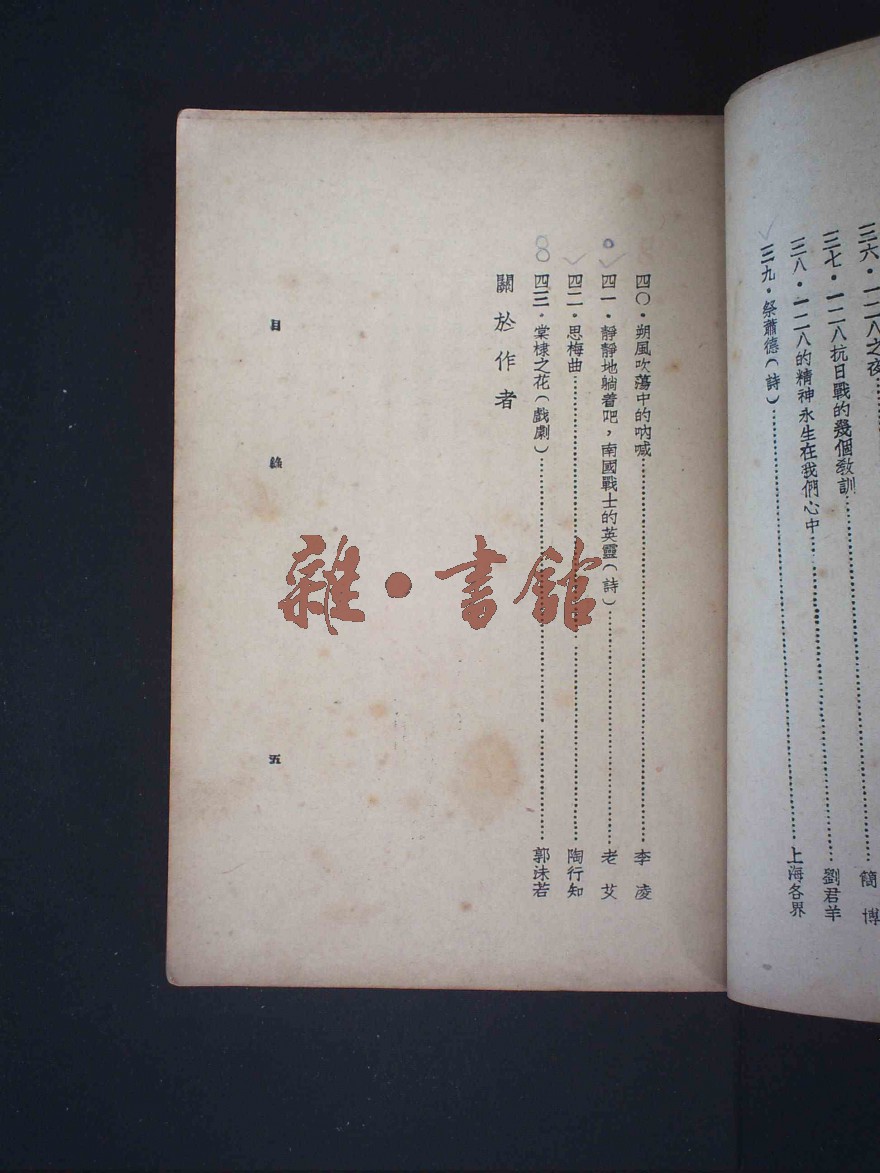 三六・一二八之夜……
三七・一二八抗日戰的幾個教訓……簡 博
三八・一二八的精神永生在我們心中……劉君羊
三九・祭蕭德(詩)……上海各界
四〇・朔風吹蕩中的吶喊……李 凌
四一・靜靜地躺着吧,南國戰士的英靈(詩)……老 艾
四二・思梅曲……陶行知
8 四三・棠棣之花(戲劇)……郭沫若
關於作者
目 錄 五
雜・書館